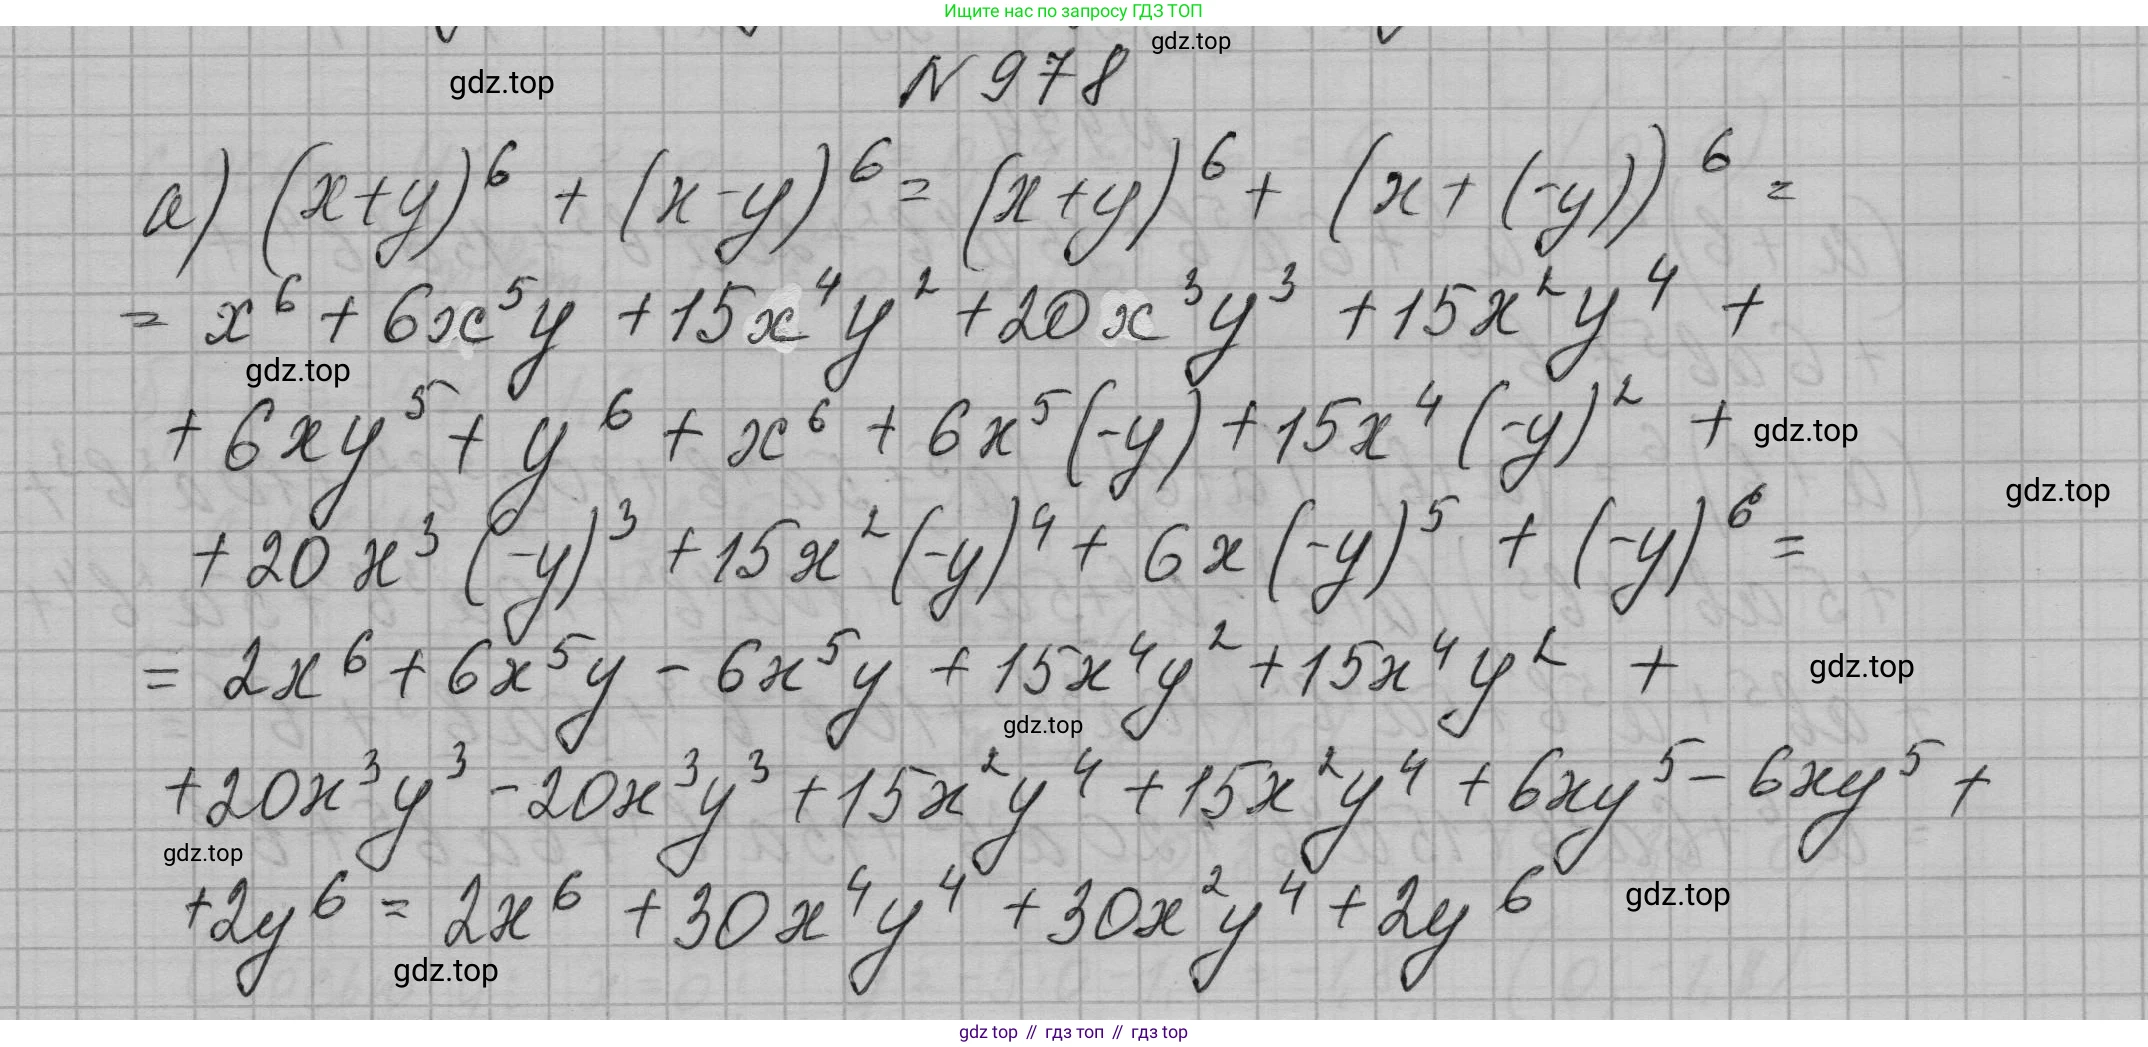 Ищите нас по запросу ГДЗ ТОП
gdz.top
N 978
gdz.top
а) (x+y)⁶ + (x-y)⁶ = (x+y)⁶ + (x+(-y))⁶ =
= x⁶ + 6x⁵y + 15x⁴y² + 20x³y³ + 15x²y⁴ +
gdz.top
+ 6xy⁵ + y⁶ + x⁶ + 6x⁵(-y) + 15x⁴(-y)² +
gdz.top
gdz.top
+ 20x³(-y)³ + 15x²(-y)⁴ + 6x(-y)⁵ + (-y)⁶ =
= 2x⁶ + 6x⁵y - 6x⁵y + 15x⁴y² + 15x⁴y² +
gdz.top
gdz.top
+ 20x³y³ - 20x³y³ + 15x²y⁴ + 15x²y⁴ + 6xy⁵ - 6xy⁵ +
gdz.top
+ 2y⁶ = 2x⁶ + 30x⁴y⁴ + 30x²y⁴ + 2y⁶
gdz.top
gdz.top
gdz top // гдз топ // гдз top